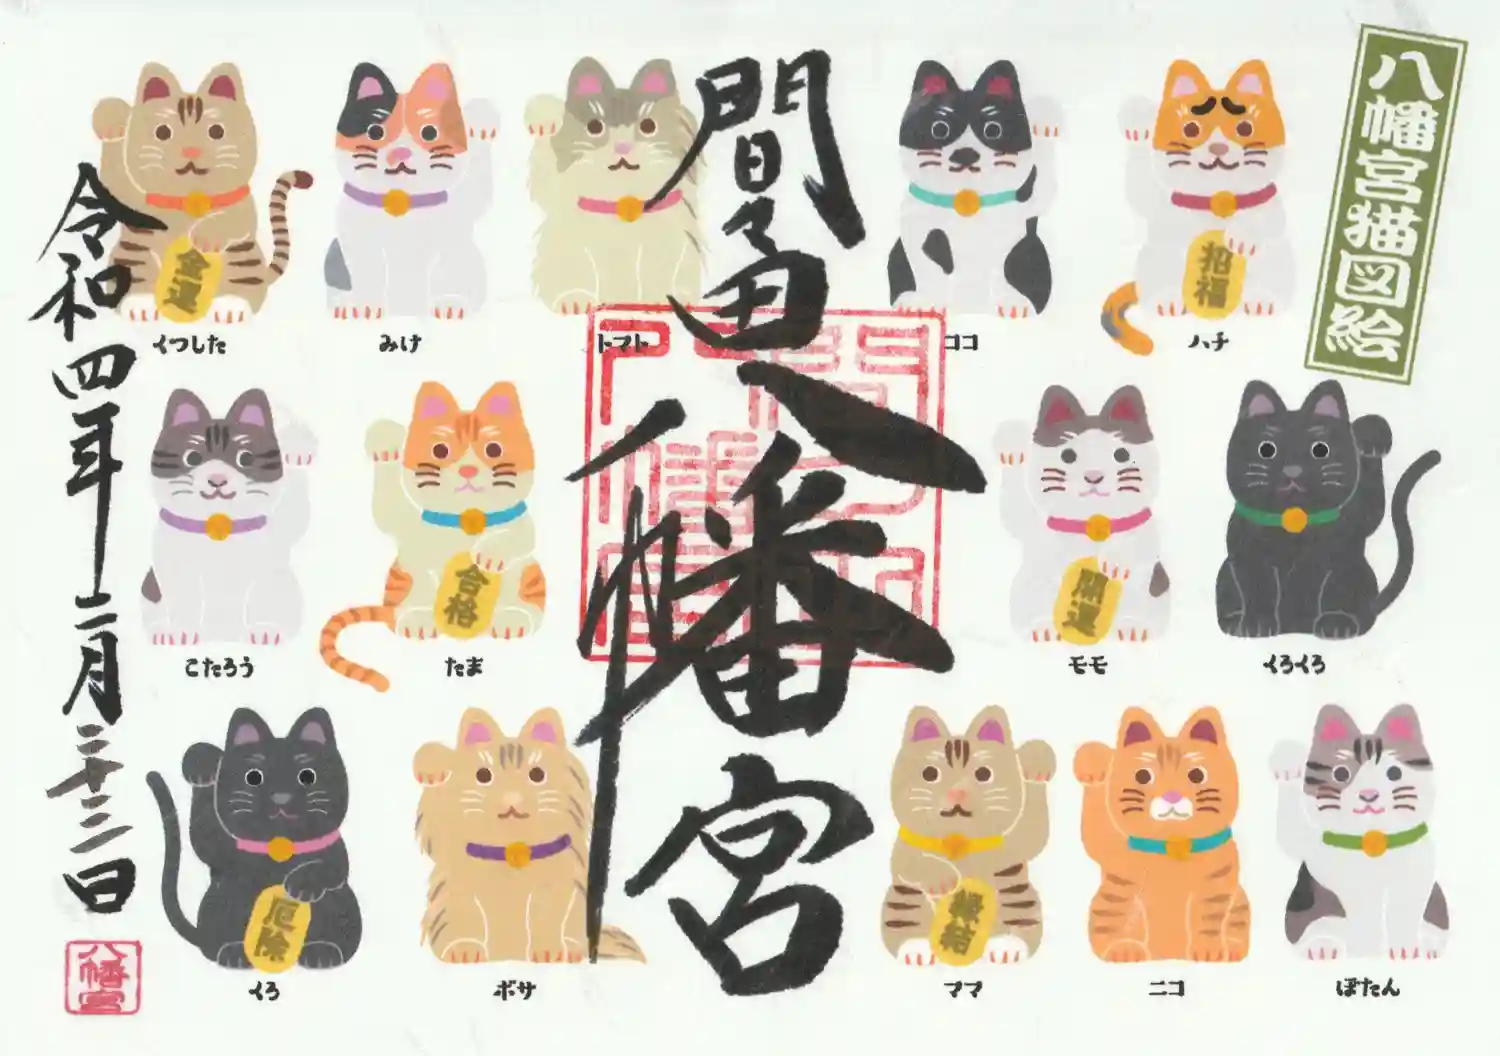 八幡宮猫図絵
間々田八幡宮
令和四年二月二十二日
金運
くつした
みけ
トマト
ココ
招福
ハチ
こたろう
合格
たま
開運
モモ
くろくろ
厄除
くろ
ボサ
縁結
ママ
ニコ
ぼたん
八幡宮